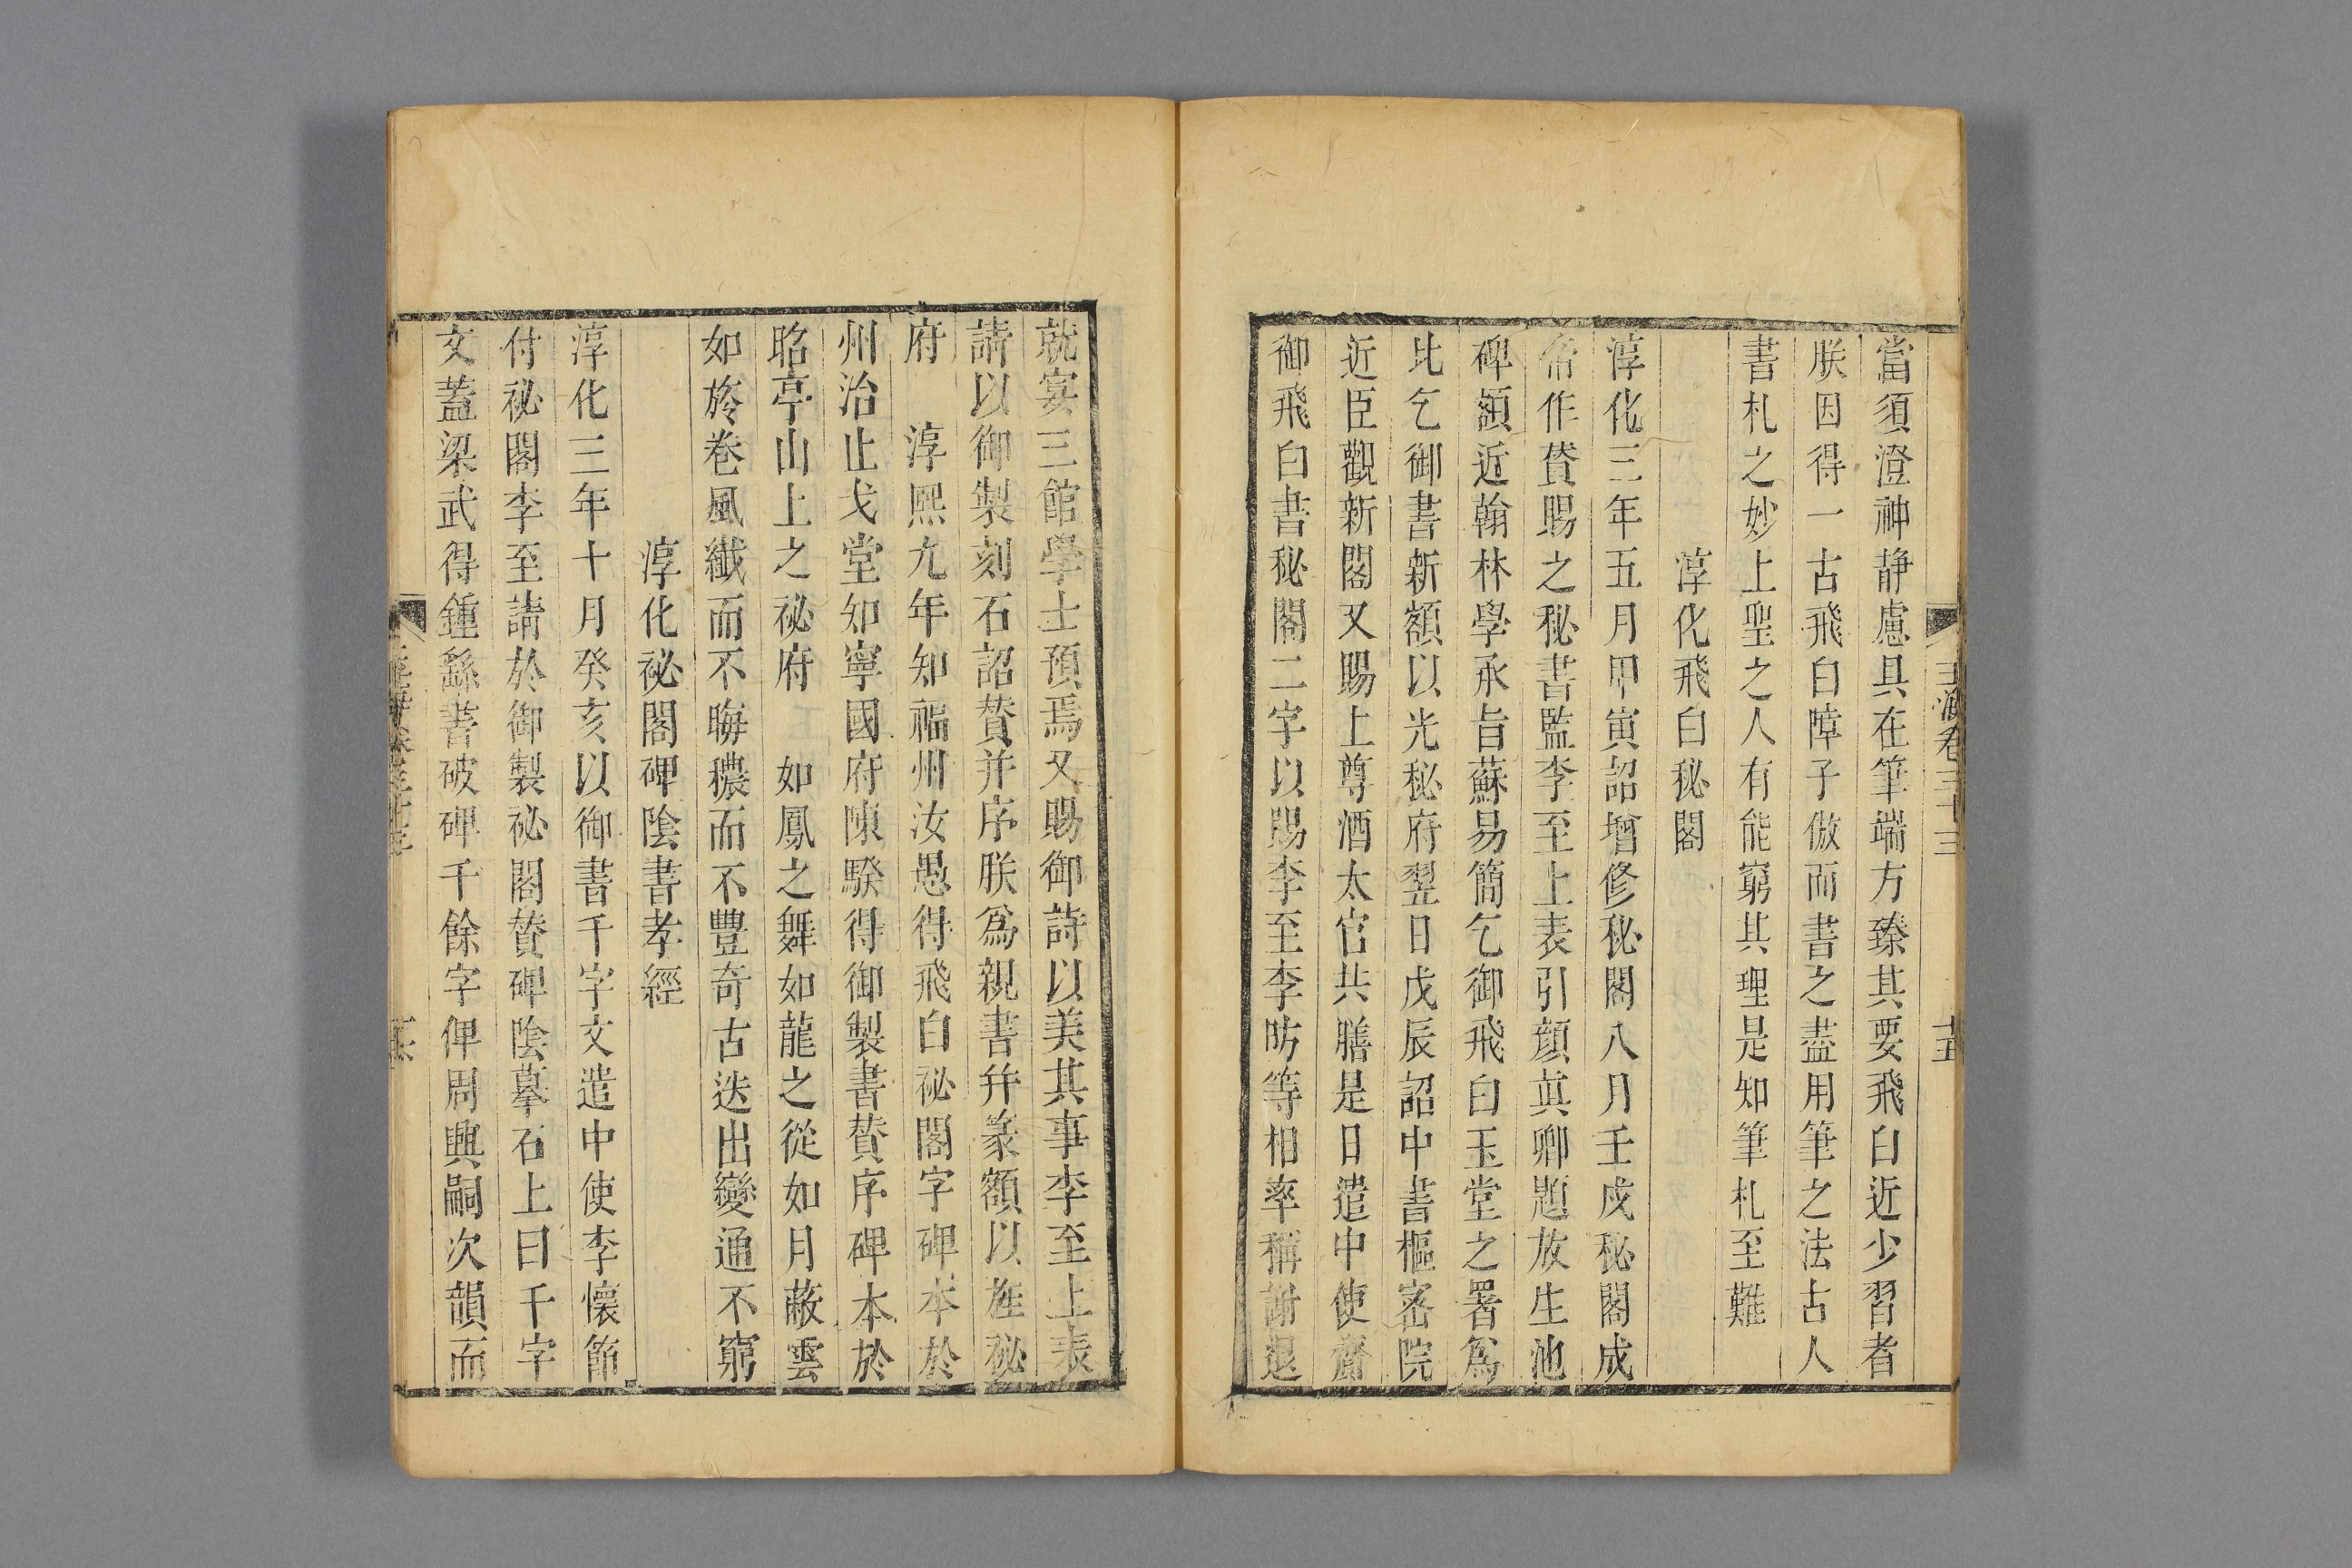 玉海卷三十三
十五
當須澄神静慮具在筆端方臻其要飛白近少習者
朕因得一古飛白障子倣而書之盡用筆之法古人
書札之妙上聖之人有能窮其理是知筆札至難
淳化飛白秘閣
淳化三年五月甲寅詔增修秘閣八月壬戌秘閣成
帝作賛賜之秘書監李至上表引顔眞卿題放生池
碑額近翰林學承旨蘇易簡乞御飛白玉堂之署爲
比乞御書新額以光秘府翌日戊辰詔中書樞密院
近臣觀新閣又賜上尊酒太官共膳是日遣中使齎
御飛白書秘閣二字以賜李至李昉等相率稱謝退
就宴三館學士預焉又賜御詩以美其事李至上表
請以御製刻石詔賛并序朕爲親書幷篆額以旌祕
府　淳熙九年知福州汝愚得飛白祕閣字碑本於
州治止戈堂知寧國府陳騤得御製書賛序碑本於
昭亭山上之祕府　如鳳之舞如龍之從如月蔽雲
如旍卷風纎而不晦穠而不豐奇古迭出變通不窮
淳化祕閣碑陰書孝經
淳化三年十月癸亥以御書千字文遣中使李懷節
付祕閣李至請於御製祕閣賛碑陰摹石上曰千字
文蓋梁武得鍾繇書破碑千餘字俾周興嗣次韻而